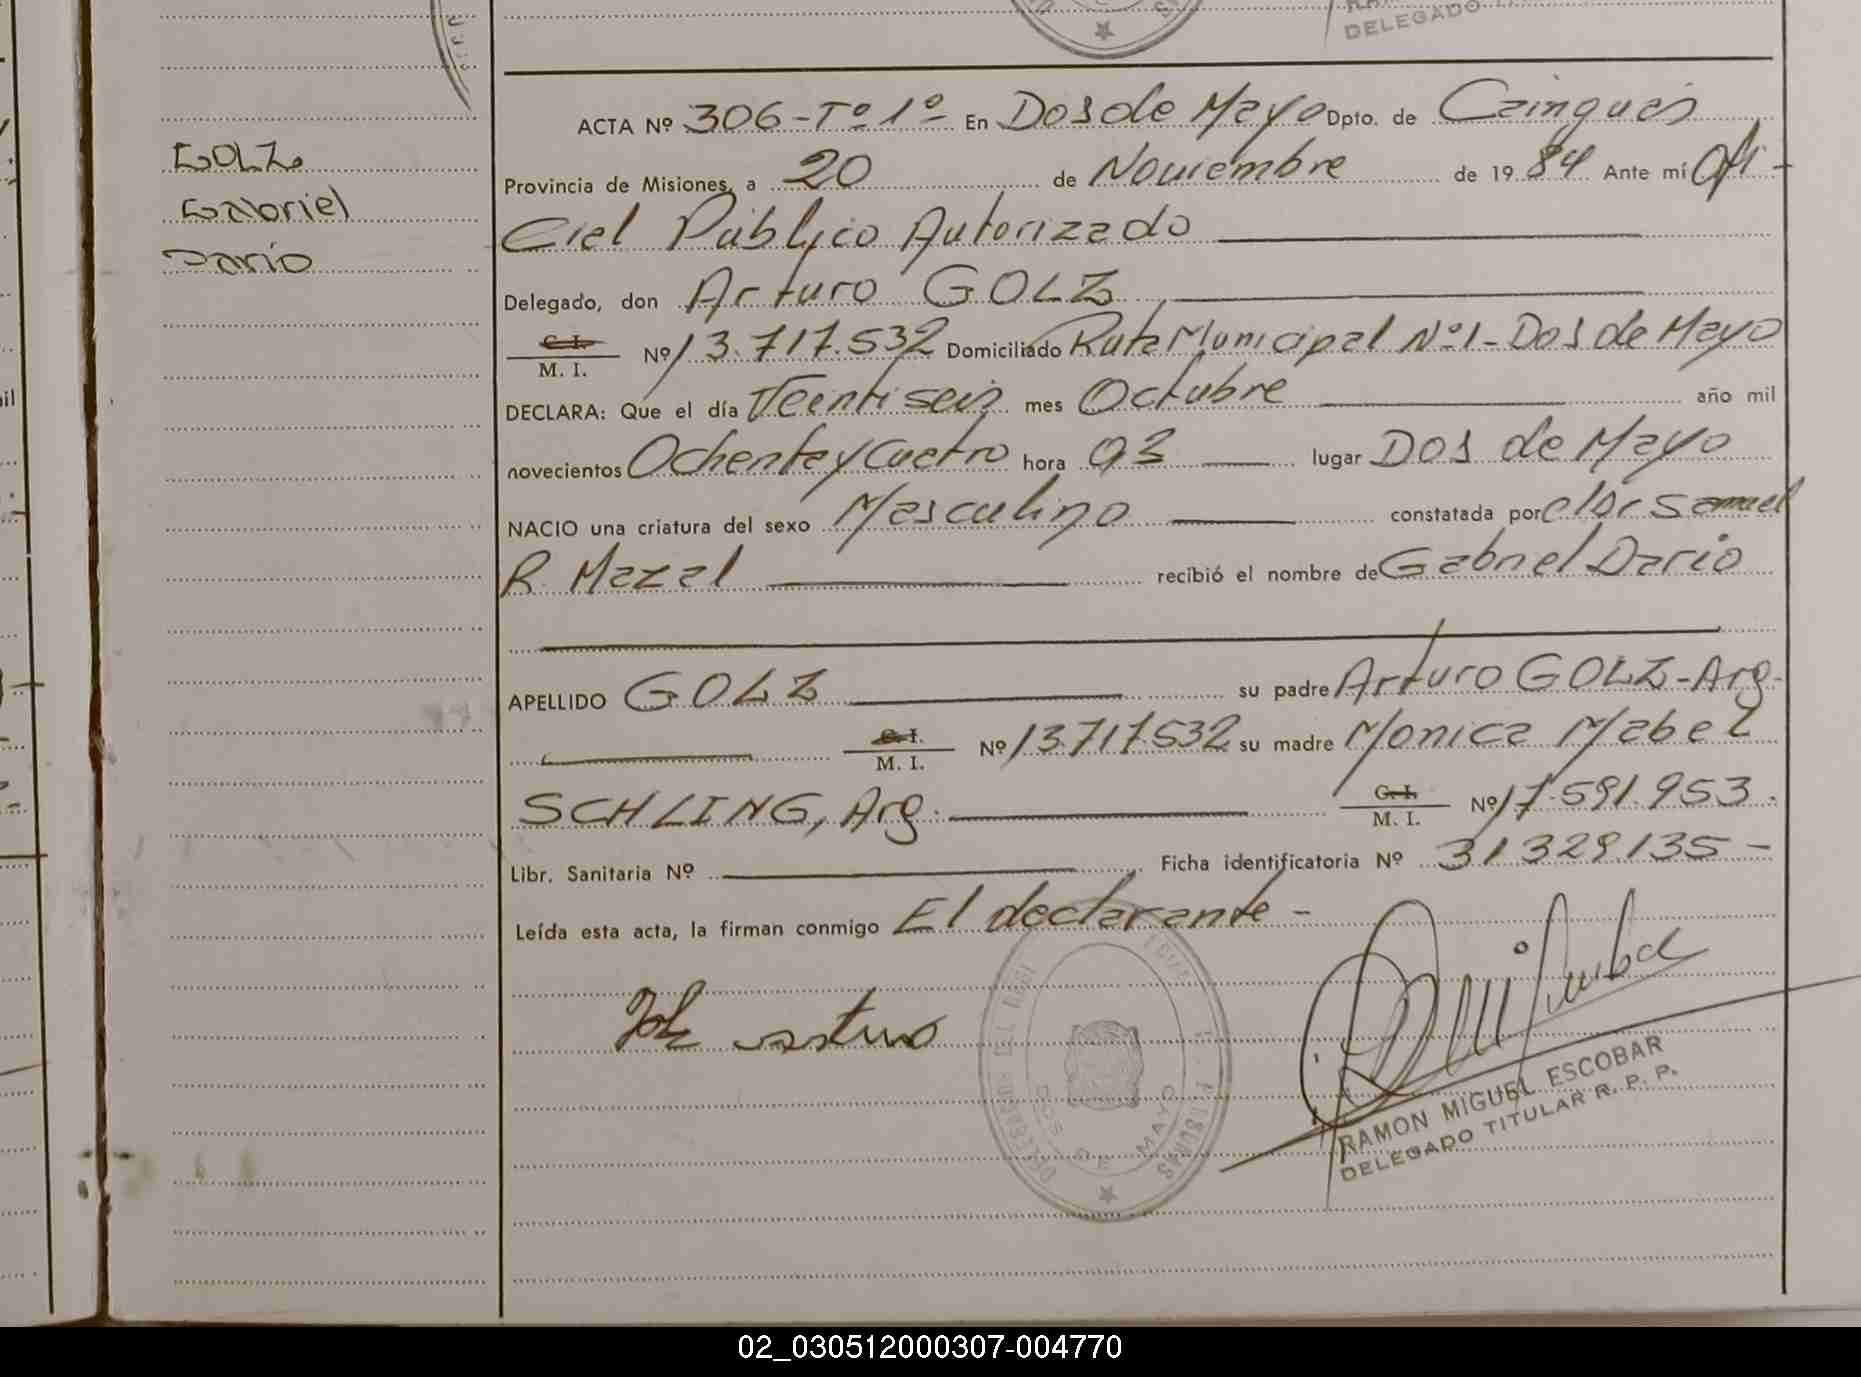 DELEGADO
ACTA Nº 306-Tº1º En Dos de Mayo Dpto. de Cainguás
GOLZ
Gabriel
Darío
Provincia de Misiones, a 20 de Noviembre de 1984 Ante mí Ofi-
cial Público Autorizado
Delegado, don Arturo GOLZ
C. I.
M. I. Nº 13.717.532 Domiciliado Ruta Municipal Nº1-Dos de Mayo
DECLARA: Que el día Veintiseis mes Octubre año mil
novecientos Ochenta y Cuatro hora 03 lugar Dos de Mayo
NACIO una criatura del sexo Masculino constatada por el Dr Samuel
R. Mazal recibió el nombre de Gabriel Dario
APELLIDO GOLZ su padre Arturo GOLZ-Arg-
C. I.
M. I. Nº 13.717.532 su madre Monica Mabel
SCHLING, Arg. C. I.
M. I. Nº 17.591.953.
Libr. Sanitaria Nº Ficha identificatoria Nº 31.329.135-
Leída esta acta, la firman conmigo El declarante-
Golz Arturo
DOS DE MAYO
RAMON MIGUEL ESCOBAR
DELEGADO TITULAR R. P. P.
02_030512000307-004770